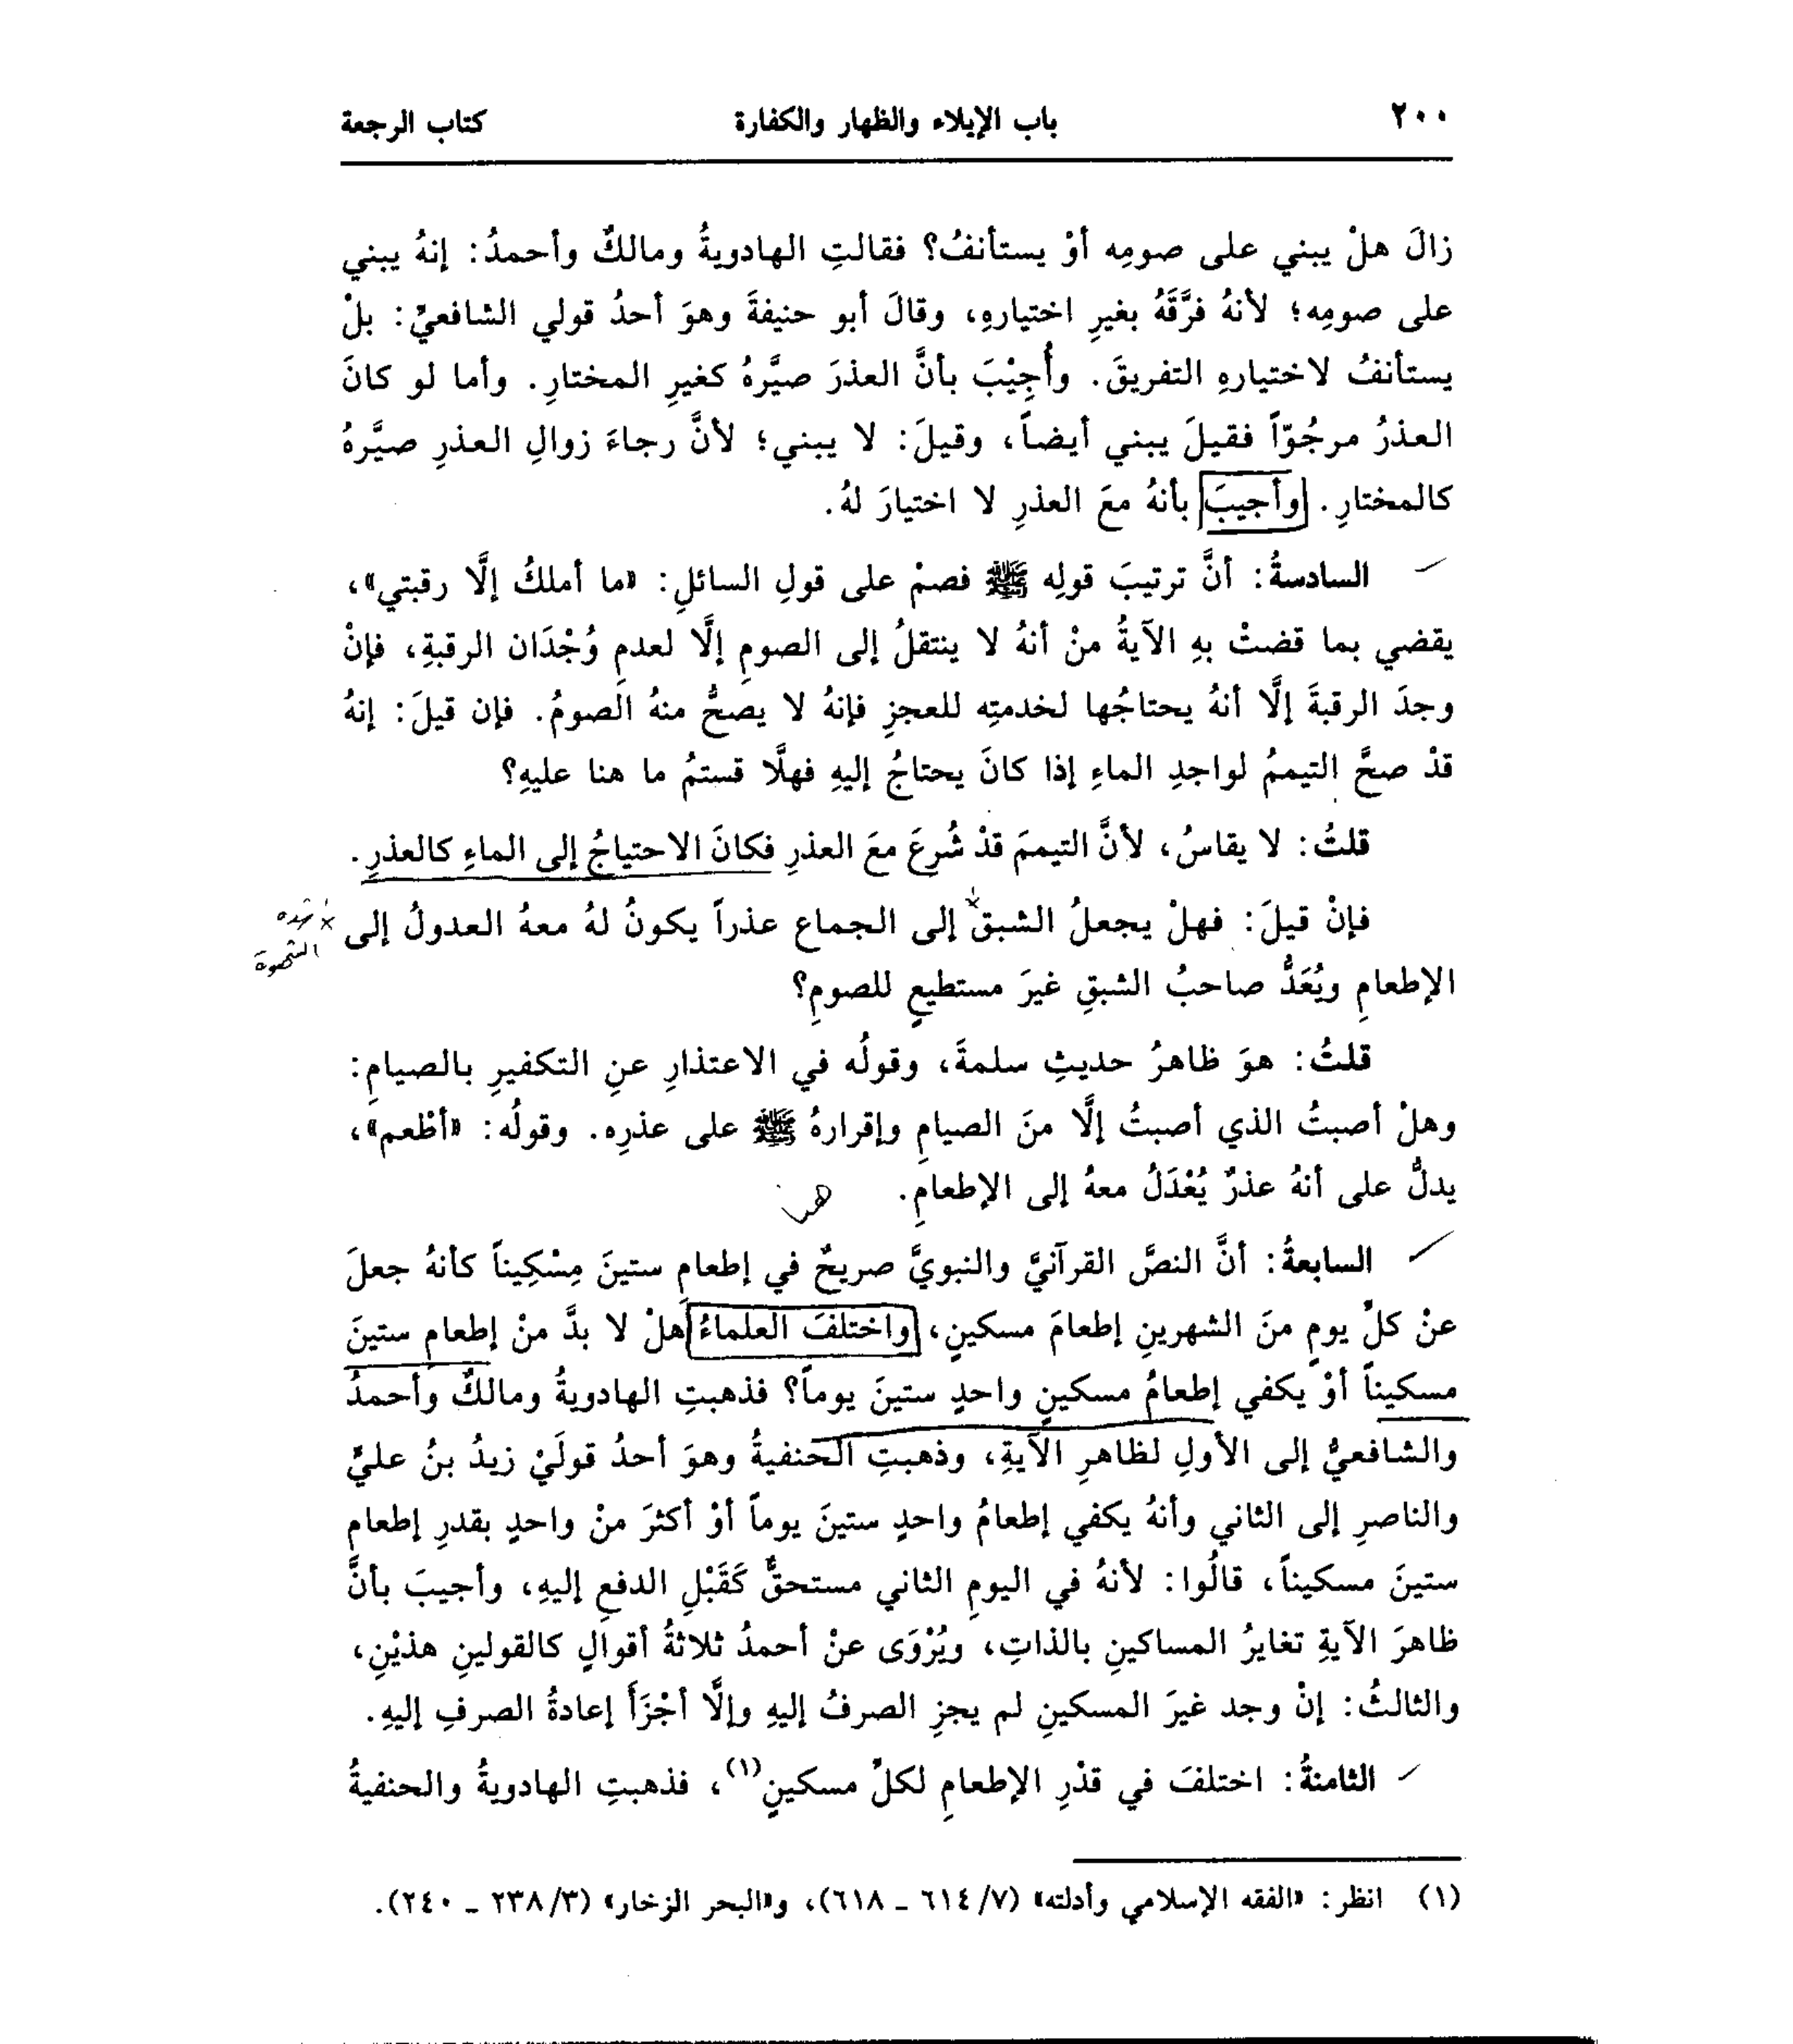 ٢٠٠ باب الإيلاء والظهار والكفارة كتاب الرجعة
زالَ هلْ يبني على صومِه أوْ يستأنفُ؟ فقالتِ الهادويةُ ومالكٌ وأحمدُ: إنهُ يبني
على صومِه؛ لأنهُ فرَّقَهُ بغيرِ اختيارهِ، وقالَ أبو حنيفةَ وهوَ أحدُ قولي الشافعيِّ: بلْ
يستأنفُ لاختيارهِ التفريقَ. وأُجِيْبَ بأنَّ العذرَ صيَّرهُ كغيرِ المختارِ. وأما لو كانَ
العذرُ مرجُوّاً فقيلَ يبني أيضاً، وقيلَ: لا يبني؛ لأنَّ رجاءَ زوالِ العذرِ صيَّرهُ
كالمختارِ. وأجيبَ بأنهُ معَ العذرِ لا اختيارَ لهُ.
السادسةُ: أنَّ ترتيبَ قولِه ﷺ فصمْ على قولِ السائلِ: «ما أملكُ إلَّا رقبتي»،
يقضي بما قضتْ بهِ الآيةُ منْ أنهُ لا ينتقلُ إلى الصومِ إلَّا لعدمِ وُجْدَان الرقبةِ، فإنْ
وجدَ الرقبةَ إلَّا أنهُ يحتاجُها لخدمتِه للعجزِ فإنهُ لا يصحُّ منهُ الصومُ. فإن قيلَ: إنهُ
قدْ صحَّ التيممُ لواجدِ الماءِ إذا كانَ يحتاجُ إليهِ فهلَّا قستمُ ما هنا عليهِ؟
قلتُ: لا يقاسُ، لأنَّ التيممَ قدْ شُرِعَ معَ العذرِ فكانَ الاحتياجُ إلى الماءِ كالعذرِ.
فإنْ قيلَ: فهلْ يجعلُ الشبقُ إلى الجماع عذراً يكونُ لهُ معهُ العدولُ إلى
شده
الشهوة
الإطعامِ ويُعَدُّ صاحبُ الشبقِ غيرَ مستطيعٍ للصومِ؟
قلتُ: هوَ ظاهرُ حديثِ سلمةَ، وقولُه في الاعتذارِ عنِ التكفيرِ بالصيامِ:
وهلْ أصبتُ الذي أصبتُ إلَّا منَ الصيامِ وإقرارهُ ﷺ على عذرِه. وقولُه: «أطْعم»،
يدلُّ على أنهُ عذرٌ يُعْدَلُ معهُ إلى الإطعامِ.
السابعةُ: أنَّ النصَّ القرآنيَّ والنبويَّ صريحٌ في إطعامِ ستينَ مِسْكِيناً كأنهُ جعلَ
عنْ كلِّ يومٍ منَ الشهرينِ إطعامَ مسكينٍ، واختلفَ العلماءُ هلْ لا بدَّ منْ إطعامِ ستينَ
مسكيناً أوْ يكفي إطعامُ مسكينٍ واحدٍ ستينَ يوماً؟ فذهبتِ الهادويةُ ومالكٌ وأحمدُ
والشافعيُّ إلى الأولِ لظاهرِ الآيةِ، وذهبتِ الحنفيةُ وهوَ أحدُ قولَيْ زيدُ بنُ عليٍّ
والناصرِ إلى الثاني وأنهُ يكفي إطعامُ واحدٍ ستينَ يوماً أوْ أكثرَ منْ واحدٍ بقدرِ إطعامِ
ستينَ مسكيناً، قالُوا: لأنهُ في اليومِ الثاني مستحقٌّ كَقَبْلِ الدفعِ إليهِ، وأجيبَ بأنَّ
ظاهرَ الآيةِ تغايرُ المساكينِ بالذاتِ، ويُرْوَى عنْ أحمدُ ثلاثةُ أقوالٍ كالقولينِ هذيْنِ،
والثالثُ: إنْ وجد غيرَ المسكينِ لم يجزِ الصرفُ إليهِ وإلَّا أجْزَأَ إعادةُ الصرفِ إليهِ.
الثامنةُ: اختلفَ في قدْرِ الإطعامِ لكلِّ مسكينٍ(١)، فذهبتِ الهادويةُ والحنفيةُ
(١) انظر: «الفقه الإسلامي وأدلته» (٧/ ٦١٤ - ٦١٨)، و«البحر الزخار» (٣/ ٢٣٨ - ٢٤٠).